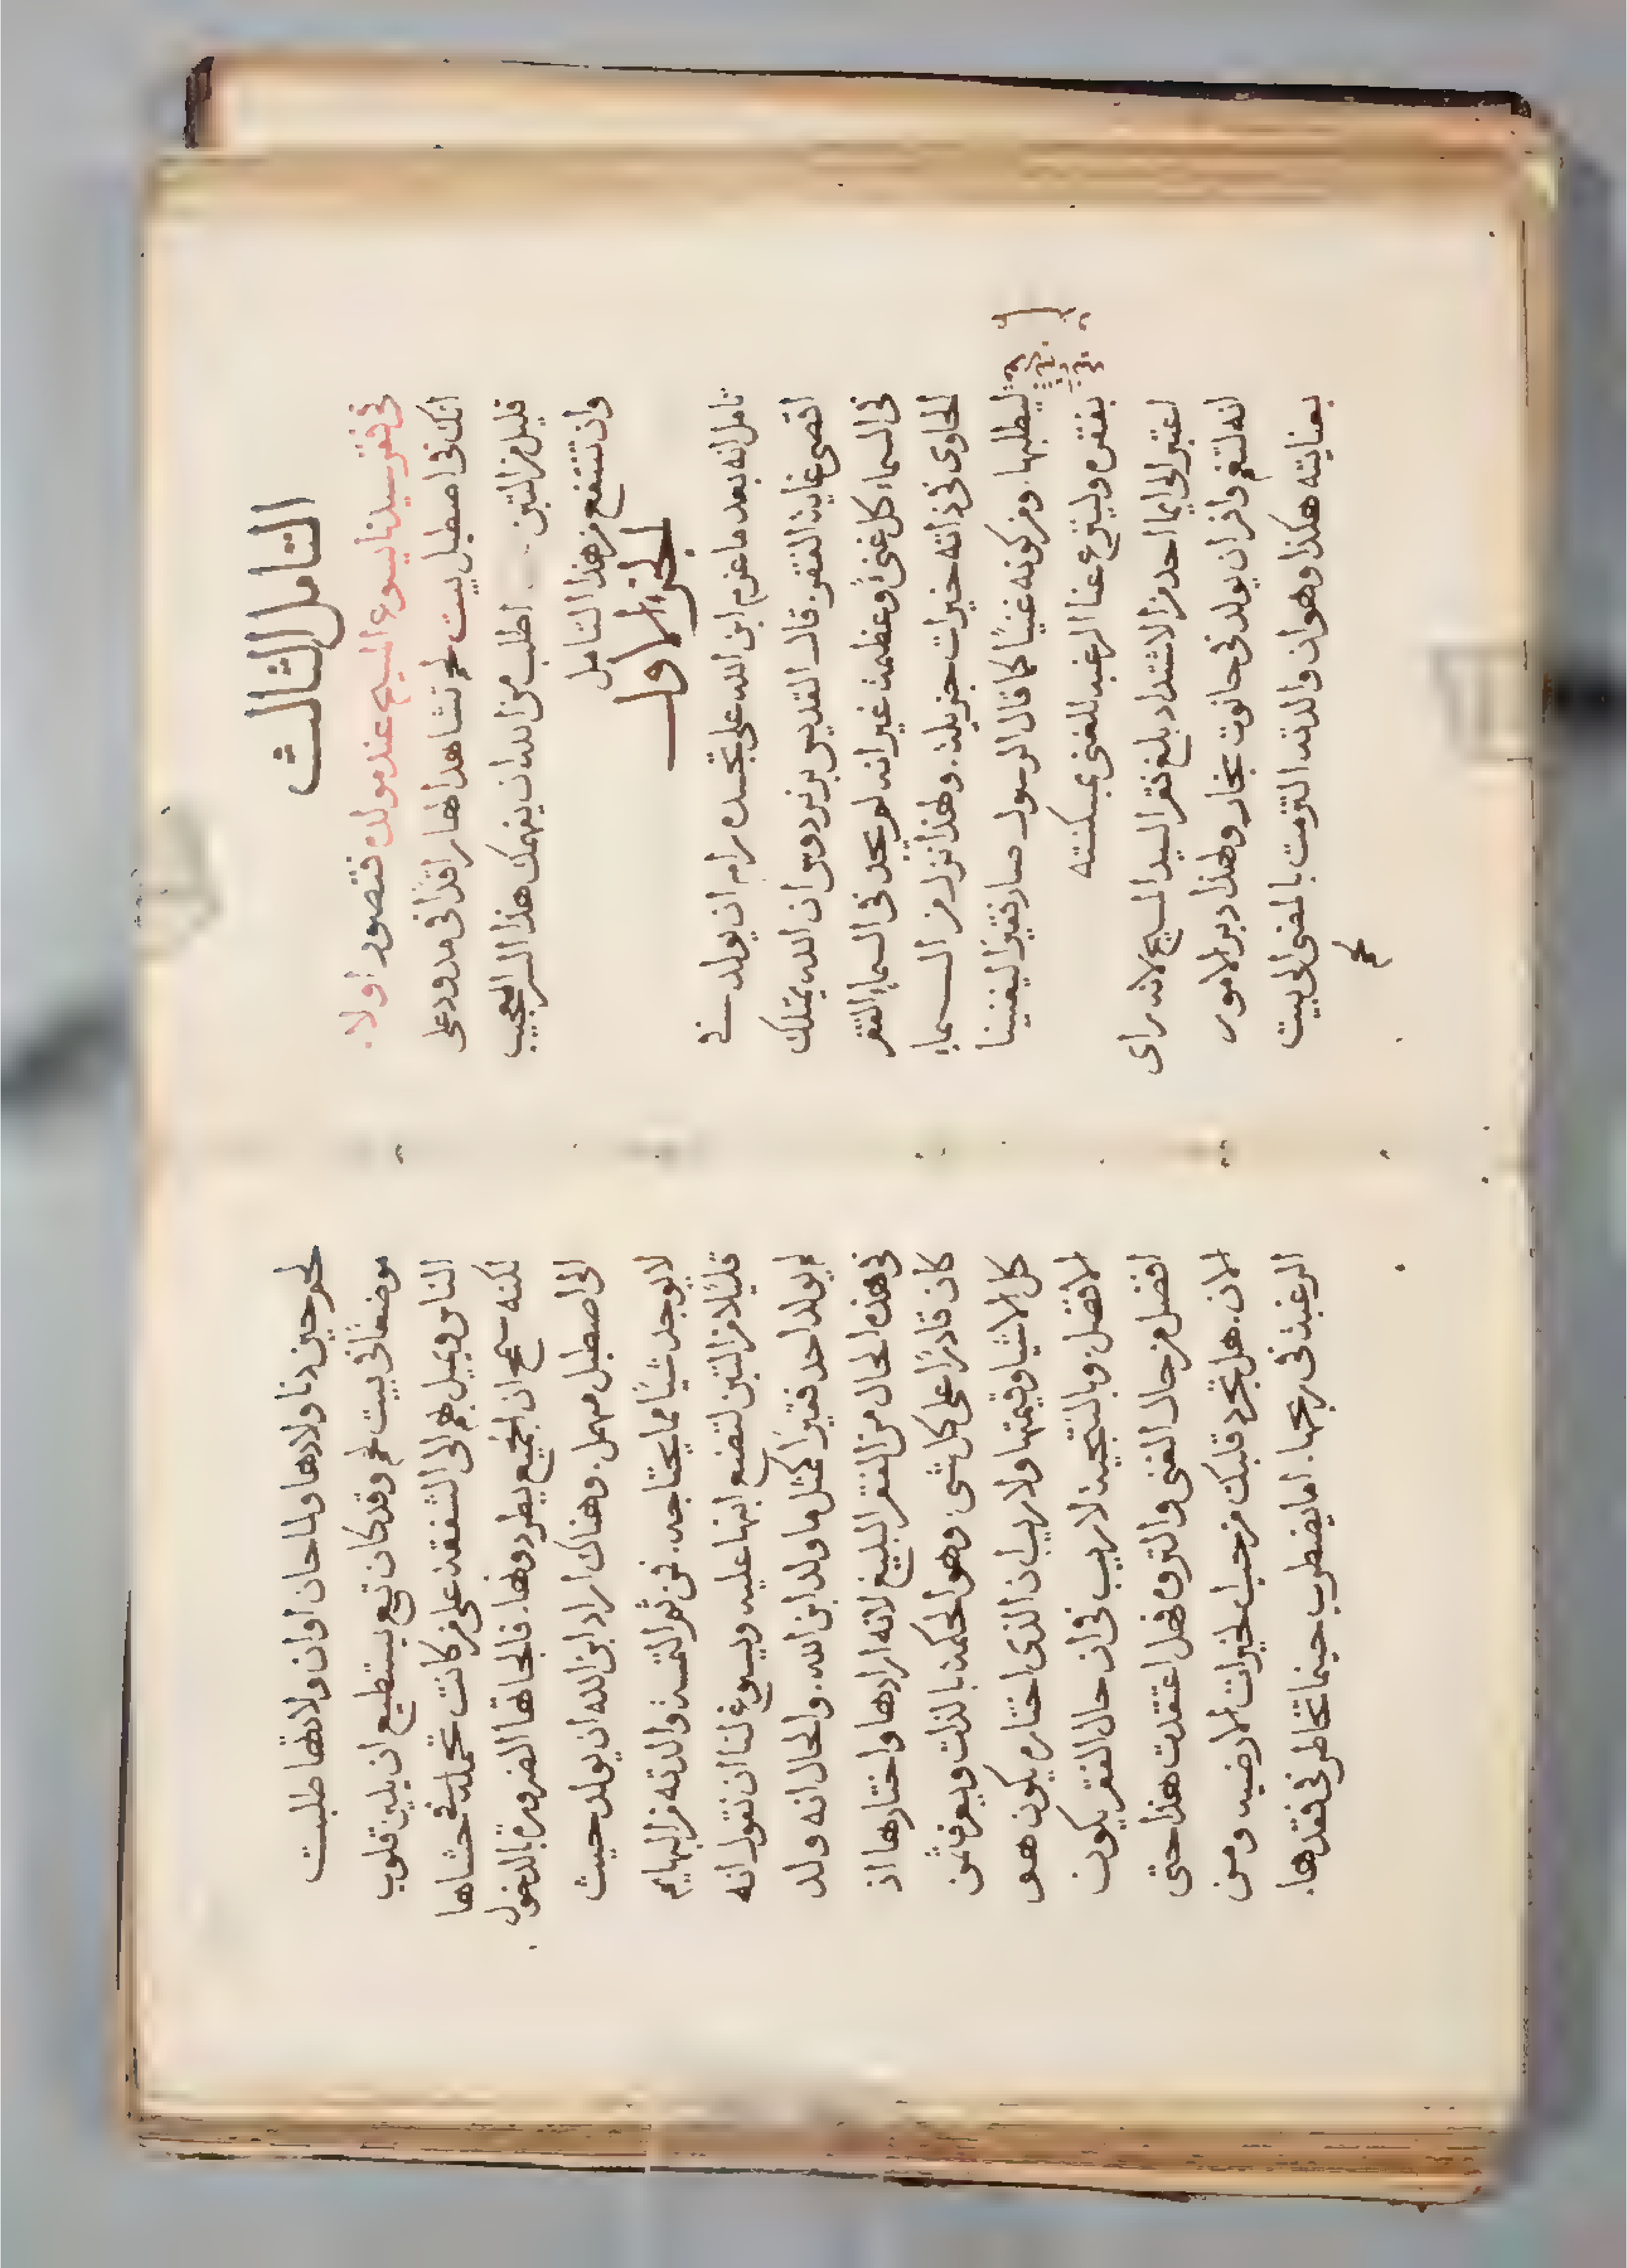 التامل الثالث
في فقر سيدنا يسوع المسيح عند مولده فتصور اولا.
انك في اصطبل بيت لحم تشاهد الهار اقدًا في مدود على
قليل من التبن. اطلب من الله ان يفهمك هذا السر العجيب
وان تنتفع من هذا التامل
الجزء الاول
تامل انه بعد ما عزم ابن الله على تجسده رام ان يولد في
اقصى غاية الفقر. قال القديس برنردوس ان الله يمتلك
في السماء كل غنىً وعظمة غير انه لم يجد في السماء الفقر
الحاوي في ذاته خيرات جزيلة. ولهذا نزل من السماء
ليطلبها. ومن كونه غنيًا كما قال الرسول صار فقيرًا ليغنينا
بفقره وينزع عنا الرغبة للغنى بمسكنته
اعتبر الى ايما احد من الاشتداد بلغ فقر السيد المسيح لانه راى
انه لتنعم وافر ان يولد في حانوت نجار ولهذا دبر الامور
بعنايته هكذا وهو ان والدته التزمت بالمضى الى بيت
لحم
لحم حين دنا ولادها ولما حان اوان ولادتها طلبت
موضعًا في بيت لحم وقد كان تع يستطيع ان يلين قلوب
الناس ويميل بهم الى الشفقة على من كانت تحمله في حشاها
لكنه سمح ان الجميع يطردونها. فالجاتها الضرورة بالدخول
الى اصطبل مهمل. وهناك اراد ابن الله ان يولد حيث
لا يوجد شيًا مما يحتاجه. فمن ثم التمست والدته من البهايم
قليلًا من التبن لتضع ابنها عليه ويسوغ لنا ان نقول انه
لم يولد احد فقيرًا كمثل ما ولد ابن الله. والحال انه ولد
في هذه الحال من الفقر البليغ لانه ارادها واختارها اذ
كان قادرًا على كل شى وهو الحكمة بالذات ويعرف ثمن
كل الاشيا وقيمتها ولا ريب ان الذي اختاره يكون هو
الافضل وبالنتيجة لا ريب في ان حال الفقر يكون
افضل من حال الغنى والثروه فهل اعتقدت هذا حتى
الان. هل تجرد قلبك من حب الخيرات الارضيه ومن
الرغبة في ربحها. اما يضطرب حينما تخاطر في فقدها.